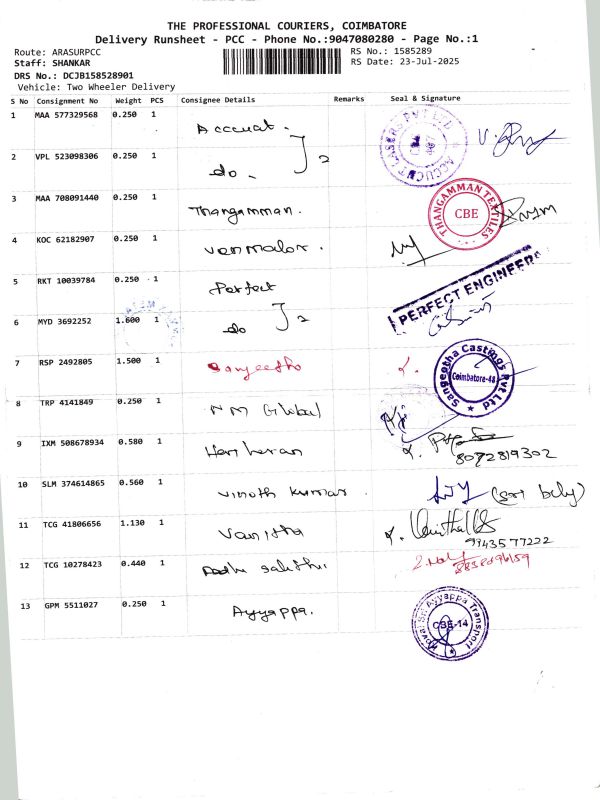 THE PROFESSIONAL COURIERS, COIMBATORE
Delivery Runsheet - PCC - Phone No.:9047080280 - Page No.:1
Route: ARASURPCC RS No.: 1585289
Staff: SHANKAR RS Date: 23-Jul-2025
DRS No.: DCJB158528901
Vehicle: Two Wheeler Delivery
S No Consignment No Weight PCS Consignee Details Remarks Seal & Signature
1 MAA 577329568 0.250 1
2 VPL 523098306 0.250 1 do 2
3 MAA 708091440 0.250 1 Thangamman. THANGAMMAN TEXTILES CBE
4 KOC 62182907 0.250 1
5 RKT 10039784 0.250 1 Perfect PERFECT ENGINEER
6 MYD 3692252 1.600 1 do 2
7 RSP 2492805 1.500 1 Sangeetha Sangeetha Castings Pvt Ltd Coimbatore-48
8 TRP 4141849 0.250 1 NM Global
9 IXM 508678934 0.580 1 Hariharan 8072819302
10 SLM 374614865 0.560 1 Vinoth Kumar
11 TCG 41806656 1.130 1 Vanitha 9943577222
12 TCG 10278423 0.440 1
13 GPM 5511027 0.250 1 Ayyappa. Kovai Sri Ayyappa Transport CBE-14